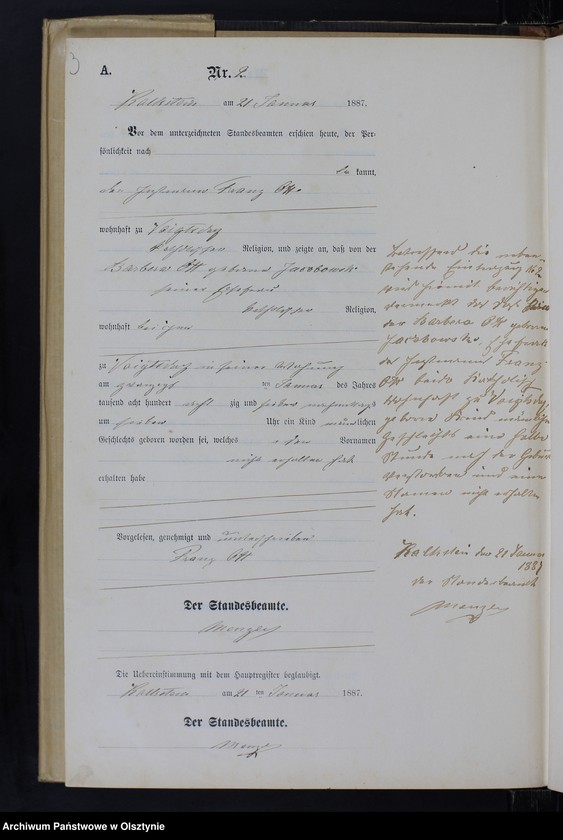 3
A.
Nr. 2.
Kalkstein am 21 Januar 1887.
Vor dem unterzeichneten Standesbeamten erschien heute, der Per-
sönlichkeit nach
be kannt,
der Franz Ott
wohnhaft zu Voigtsdorf
katholischer Religion, und zeigte an, daß von der
Barbara Ott geborene
seiner Ehefrau
katholischer Religion,
wohnhaft bei ihm
zu Voigtsdorf in seiner Wohnung
am zwanzigsten Januar des Jahres
tausend acht hundert acht zig und sieben nachmittags
um sieben Uhr ein Kind männlichen
Geschlechts geboren worden sei, welches Vornamen
nicht erhalten hat
erhalten habe
Vorgelesen, genehmigt und unterschrieben
Franz Ott
Der Standesbeamte.
Menzel
Die Uebereinstimmung mit dem Hauptregister beglaubigt.
Kalkstein am 21 ten Januar 1887.
Der Standesbeamte.
Betreffend die neben-
stehende Eintragung
wird hiermit
vermerkt das
der Barbara Ott geborene
Ehefrau
Franz
Ott beide katholisch
wohnhaft zu Voigtsdorf
geborene Kind männlichen
Geschlechts eine halbe
Stunde nach der Geburt
verstorben und einen
Namen nicht erhalten
hat.
Kalkstein den 21 Januar
1887
der Standesbeamte
Menzel
Archiwum Państwowe w Olsztynie